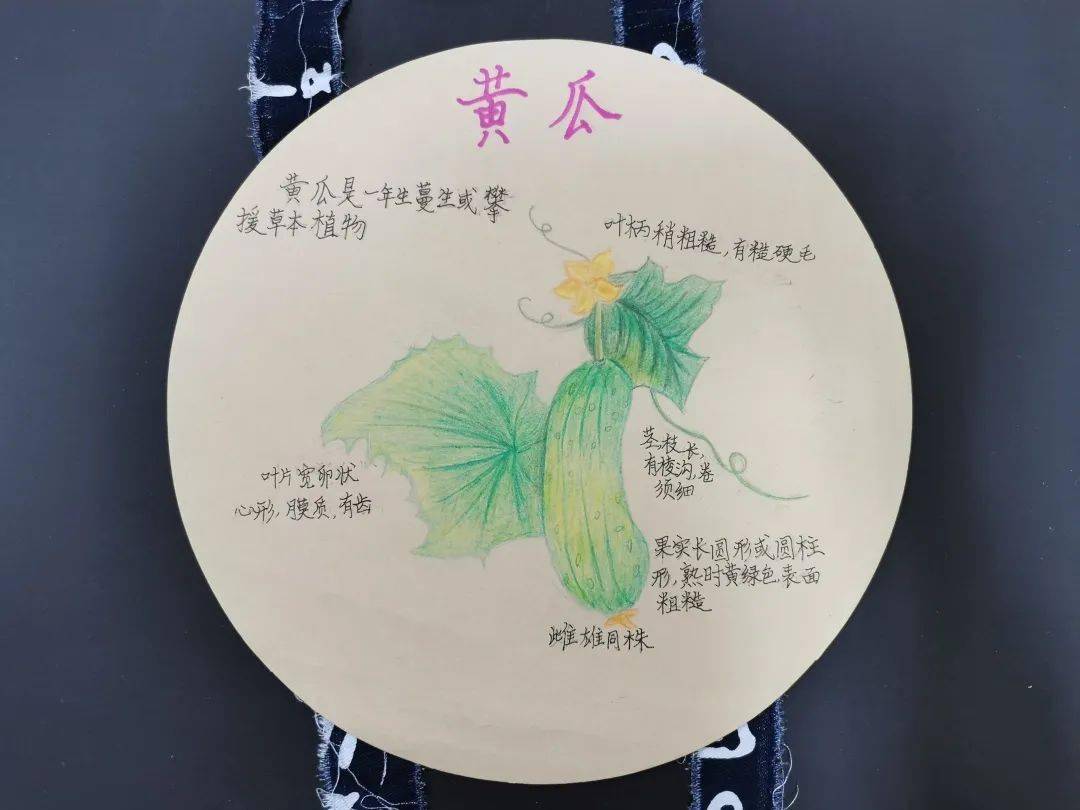 黄瓜
黄瓜是一年生蔓生或攀
援草本植物
叶柄稍粗糙,有糙硬毛
茎,枝长,
有棱沟,卷
须细
叶片宽卵状
心形,膜质,有齿
果实长圆形或圆柱
形,熟时黄绿色,表面
粗糙
雌雄同株